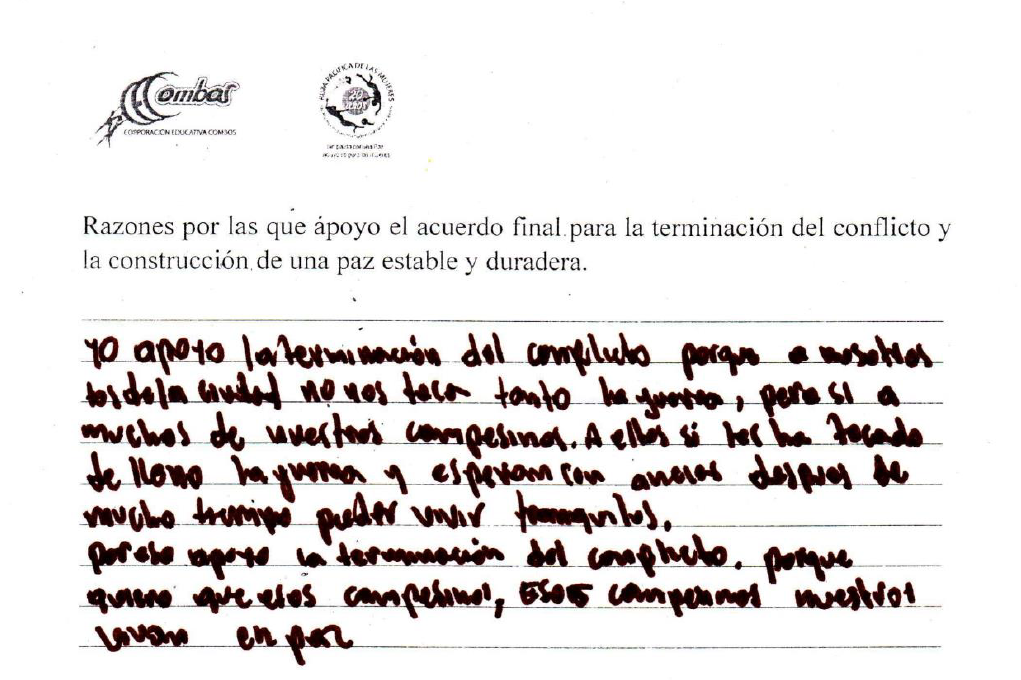 ombos
CORPORACIÓN EDUCATIVA COMBOS
RUTA PACIFICA DE LAS MUJERES
20
Razones por las que ápoyo el acuerdo final para la terminación del conflicto y
la construcción de una paz estable y duradera.
yo apoyo la terminación del compluto porque a nosotros
los de la ciudad no nos toca tanto la guerra, pero si a
muchos de nuestros campesinos. A ellos si les ha tocado
de lleno la guerra y esperan con ancias despues de
mucho tiempo poder vivir tranquilos.
por eso apoyo la terminación del compluto. porque
quiero que esos campesinos, ESOS campesinos nuestros
vivan en paz